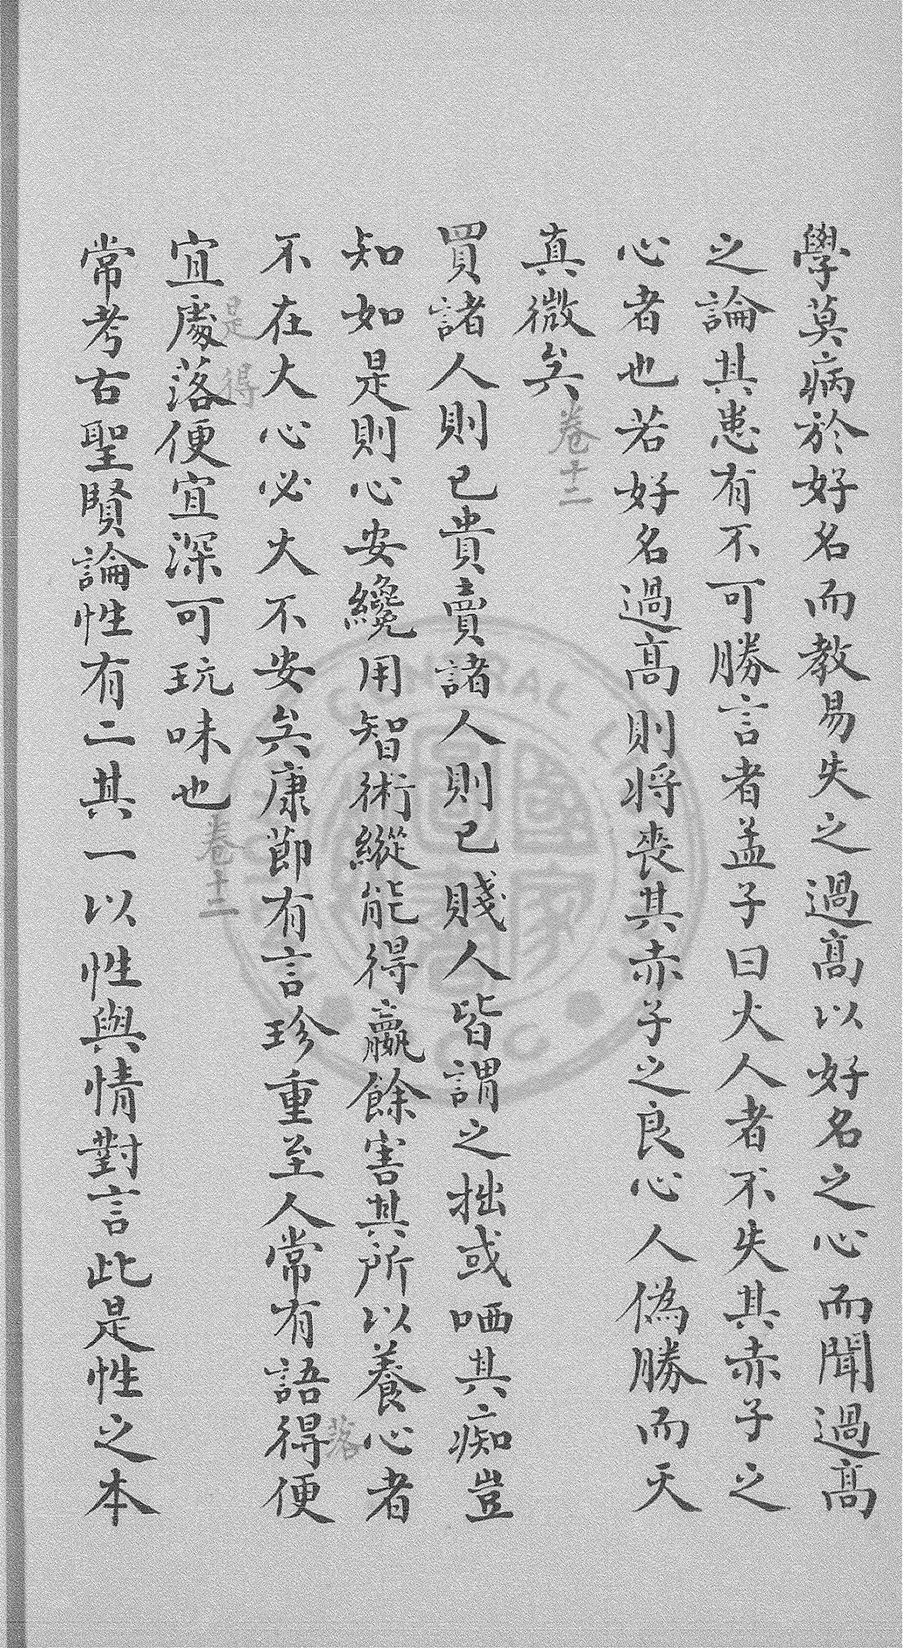 學莫病於好名而教易失之過高以好名之心而聞過高
之論其患有不可勝言者孟子曰大人者不失其赤子之
心者也若好名過高則將喪其赤子之良心人偽勝而天
真微矣
卷十二
買諸人則已貴賣諸人則已賤人皆謂之拙或哂其痴豈
知如是則心安纔用智術縱能得贏餘害其所以養心者
不在大心必大不安矣康節有言珍重至人常有語得便
落
宜處落便宜深可玩味也
是得
卷十二
常考古聖賢論性有二其一以性與情對言此是性之本
CENTRAL
國家
圖書